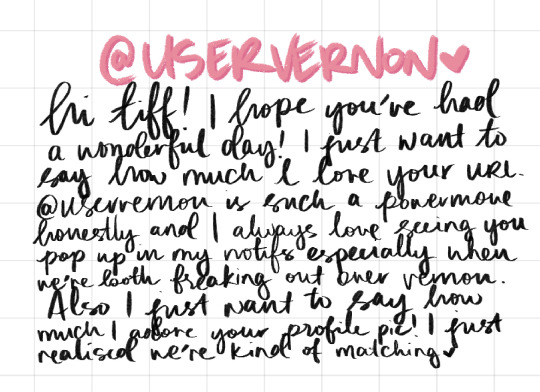 @USERVERNON♥
hi tiff! I hope you've had
a wonderful day! I just want to
say how much I love your URL.
@uservernon is such a powermove
honestly and I always love seeing you
pop up in my notifs especially when
we're both freaking out over vernon.
Also I just want to say how
much I adore your profile pic! I just
realised we're kind of matching♥